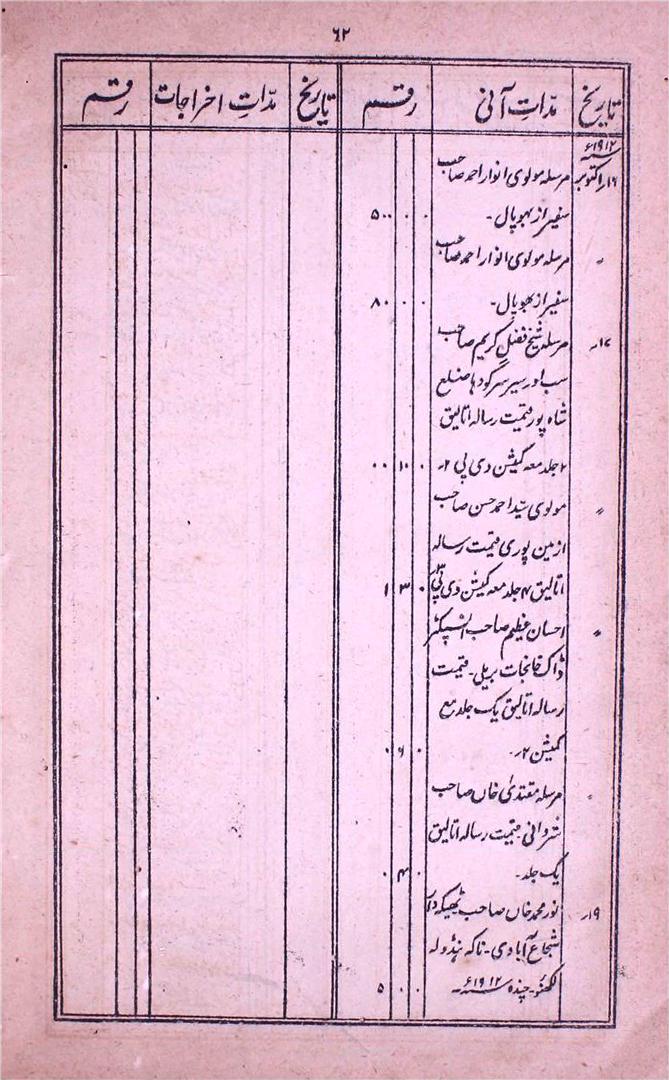 ۶۲
تاریخ مدّات آنی رقم تاریخ مدّاتِ اخراجات رقم
۱۹۱۲ء
۱۶ اکتوبر مرسلہ مولوی انوار احمد صاحب
سفیر از بھوپال۔ ۵۰۰ ۰ ۰
〃 مرسلہ مولوی انوار احمد صاحب
سفیر از بھوپال۔ ۸۰ ۰ ۰
۱۷ر مرسلہ شیخ فضل کریم صاحب
سب اورسیر سرگودہا ضلع
شاہ پور قیمت رسالہ اتالیق
۲ جلد معہ کمیشن وی پی ۲ر ۰۰ ۱۰ ۰
〃 مولوی سیّد احمد حسن صاحب
از مین پوری قیمت رسالہ
اتالیق ۴ جلد معہ کمیشن وی پی ۱ ۳ ۰
〃 احسان عظیم صاحب انسپکٹر
ڈاک خانجات بریلی۔ قیمت
رسالہ اتالیق یک جلد مع
کمیشن ۲ر۔ ۰ ۶ ۰
〃 مرسلہ مقتدیٰ خاں صاحب
شروانی۔ قیمت رسالہ اتالیق
یک جلد۔ ۰ ۴ ۰
۱۹ر نور محمد خاں صاحب ٹھیکہ دار
شجاع آبادی۔ ناکہ ہنڈولہ
لکھنؤ۔ چندہ ۱۹۱۲ء۔ ۵ ۰ ۰